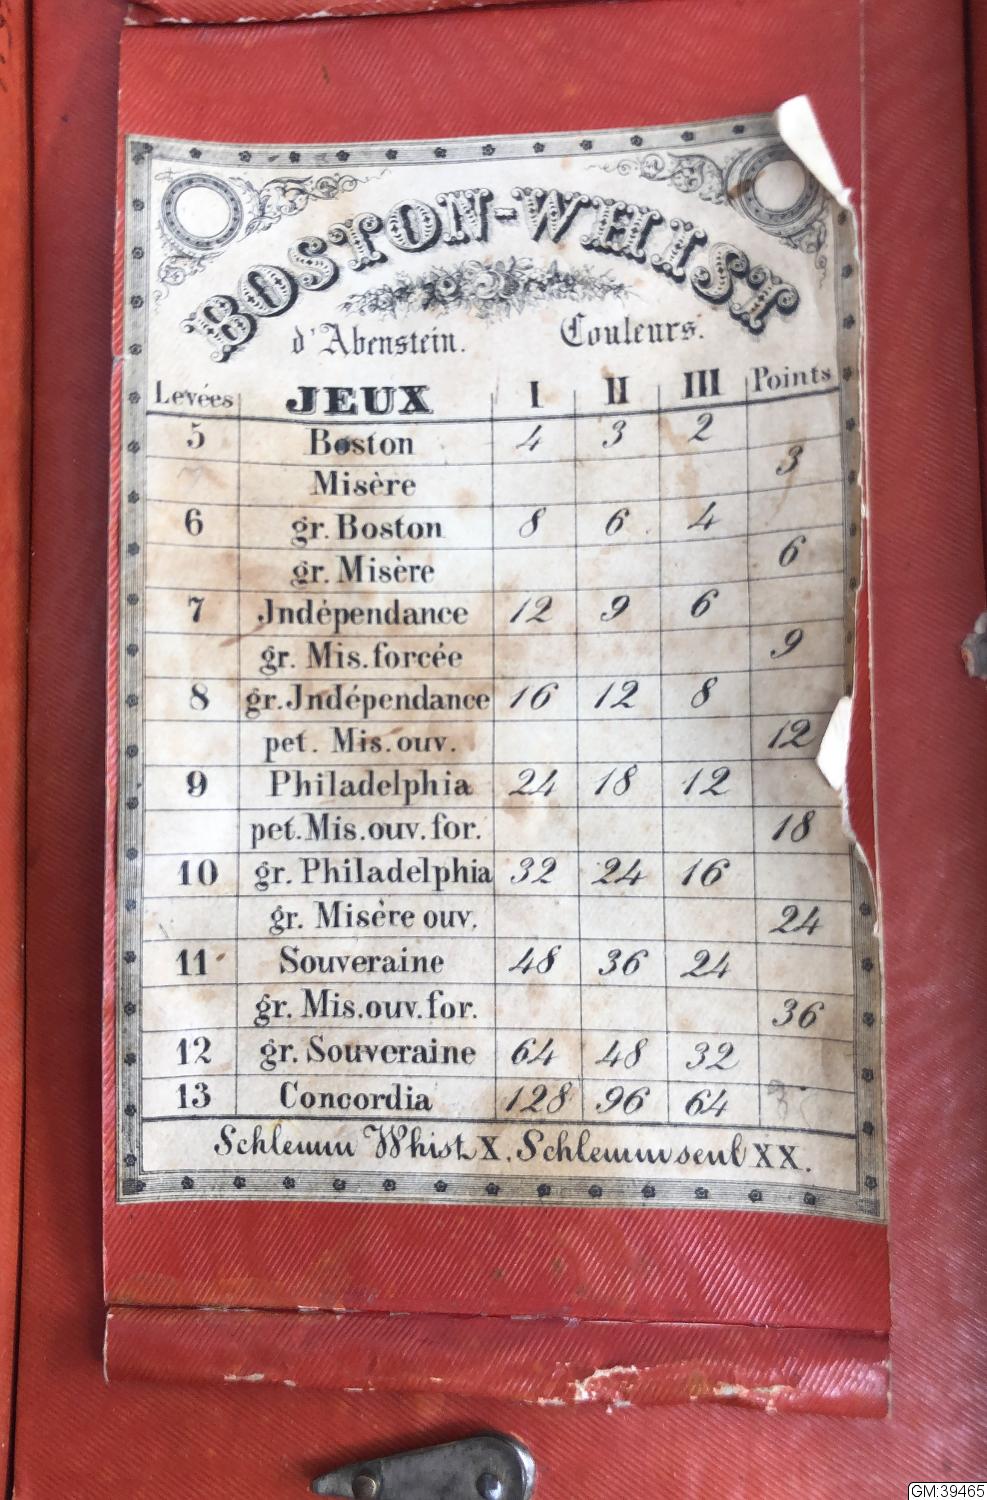 BOSTON-WHIST
d'Abenstein. Couleurs.
Levées JEUX I II III Points
5 Boston 4 3 2
Misère 3
6 gr. Boston 8 6 4
gr. Misère 6
7 Jndépendance 12 9 6
gr. Mis. forcée 9
8 gr. Jndépendance 16 12 8
pet. Mis. ouv. 12
9 Philadelphia 24 18 12
pet. Mis. ouv. for. 18
10 gr. Philadelphia 32 24 16
gr. Misère ouv. 24
11 Souveraine 48 36 24
gr. Mis. ouv. for. 36
12 gr. Souveraine 64 48 32
13 Concordia 128 96 64
Schlemm Whist X. Schlemm seul XX.
GM:39465